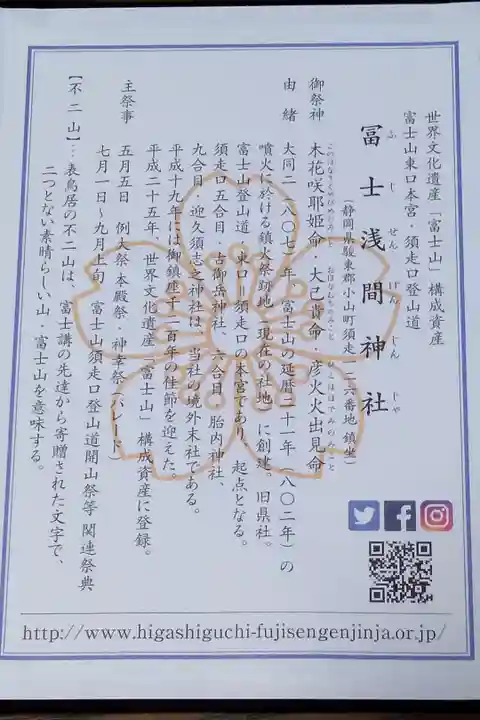 世界文化遺産「富士山」構成資産
富士山東口本宮・須走口登山道
冨士浅間神社
ふじせんげんじんじゃ
(静岡県駿東郡小山町須走一二六番地 鎮坐)
御祭神 木花咲耶姫命・大己貴命・彦火火出見命
このはなさくやひめのみこと おほなむちのみこと ひこほほでみのみこと
由緒 大同二(八〇七)年、富士山の延暦二十一年(八〇二年)の
噴火に於ける鎮火祭跡地(現在の社地)に創建。旧県社。
富士山登山道・東口=須走口の本宮であり、起点となる。
須走口五合目・古御岳神社、六合目・胎内神社、
九合目・迎久須志之神社は、当社の境外末社である。
平成十九年には御鎮座千二百年の佳節を迎えた。
平成二十五年、世界文化遺産「富士山」構成資産に登録。
主祭事 五月五日 例大祭・本殿祭・神幸祭(パレード)
七月一日〜九月上旬 富士山須走口登山道開山祭等 関連祭典
【不二山】…表鳥居の不二山は、富士講の先達から寄贈された文字で、
二つとない素晴らしい山・富士山を意味する。
http://www.higashiguchi-fujisengenjinja.or.jp/